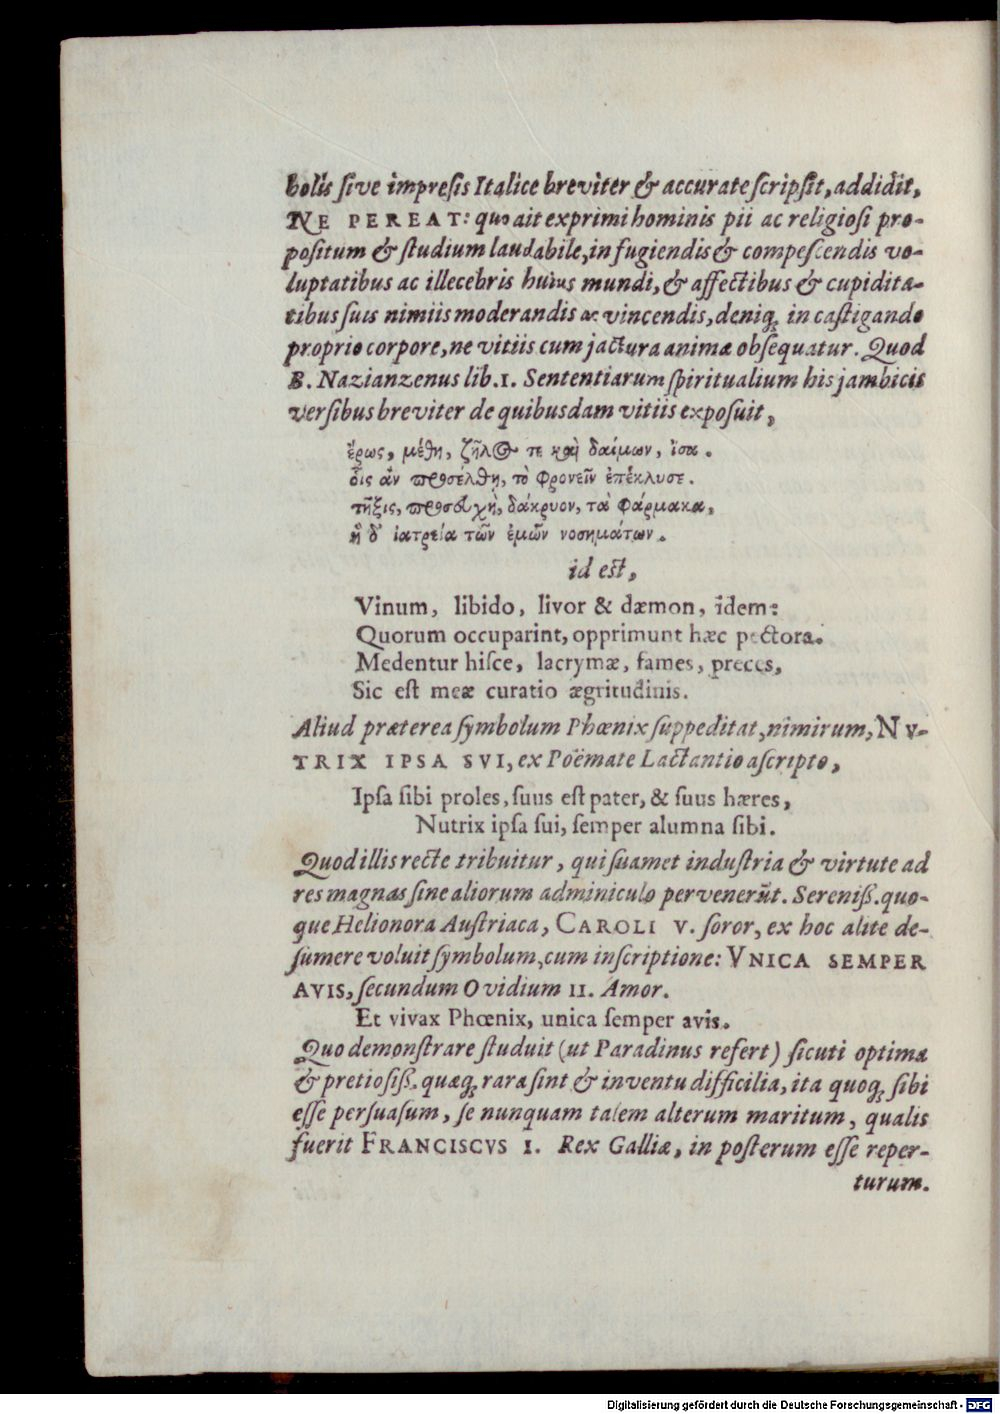 bolis ſive impreſis Italice breviter & accurate ſcripſit, addidit,
NE PEREAT: quo ait exprimi hominis pii ac religioſi pro-
poſitum & ſtudium laudabile, in fugiendis & compeſcendis vo-
luptatibus ac illecebris huius mundi, & affectibus & cupidita-
tibus ſuis nimiis moderandis ac vincendis, deniq; in caſtigando
proprio corpore, ne vitiis cum jactura animæ obſequatur. Quod
B. Nazianzenus lib. 1. Sententiarum ſpiritualium his jambicis
verſibus breviter de quibusdam vitiis expoſuit,
ἔρως, μέθη, ζῆλος τε καὶ δαίμων, ἴσα.
οἷς ἂν προσέλθη, τὸ φρονεῖν ἐπέκλυσε.
τῆξις, προσευχὴ, δάκρυον, τὰ φάρμακα,
ἡ δ' ἰατρεία τῶν ἐμῶν νοσημάτων.
id est,
Vinum, libido, livor & dæmon, idem:
Quorum occuparint, opprimunt hæc pectora.
Medentur hiſce, lacrymæ, fames, preces,
Sic eſt meæ curatio ægritudinis.
Aliud præterea ſymbolum Phœnix ſuppeditat, nimirum, NV-
TRIX IPSA SVI, ex Poëmate Lactantio aſcripto,
Ipſa ſibi proles, ſuus eſt pater, & ſuus hæres,
Nutrix ipſa ſui, ſemper alumna ſibi.
Quod illis recte tribuitur, qui ſuamet induſtria & virtute ad
res magnas ſine aliorum adminiculo pervenerūt. Sereniſſ. quo-
que Helionora Auſtriaca, CAROLI V. ſoror, ex hoc alite de-
ſumere voluit ſymbolum, cum inſcriptione: VNICA SEMPER
AVIS, ſecundum Ovidium II. Amor.
Et vivax Phœnix, unica ſemper avis.
Quo demonſtrare ſtuduit (ut Paradinus refert) ſicuti optima
& pretioſiſſ. quæq; rara ſint & inventu difficilia, ita quoq; ſibi
eſſe perſuaſum, ſe nunquam talem alterum maritum, qualis
fuerit FRANCISCVS I. Rex Galliæ, in poſterum eſſe reper-
turum.
Digitalisierung gefördert durch die Deutsche Forschungsgemeinschaft - DFG